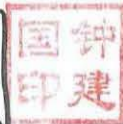 钟建
国印